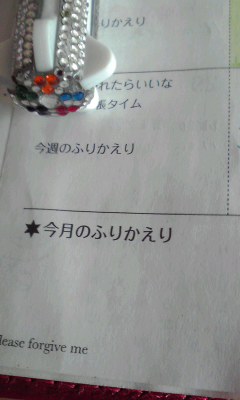 ふりかえり
れたらいいな
タイム
今週のふりかえり
★今月のふりかえり
lease forgive me